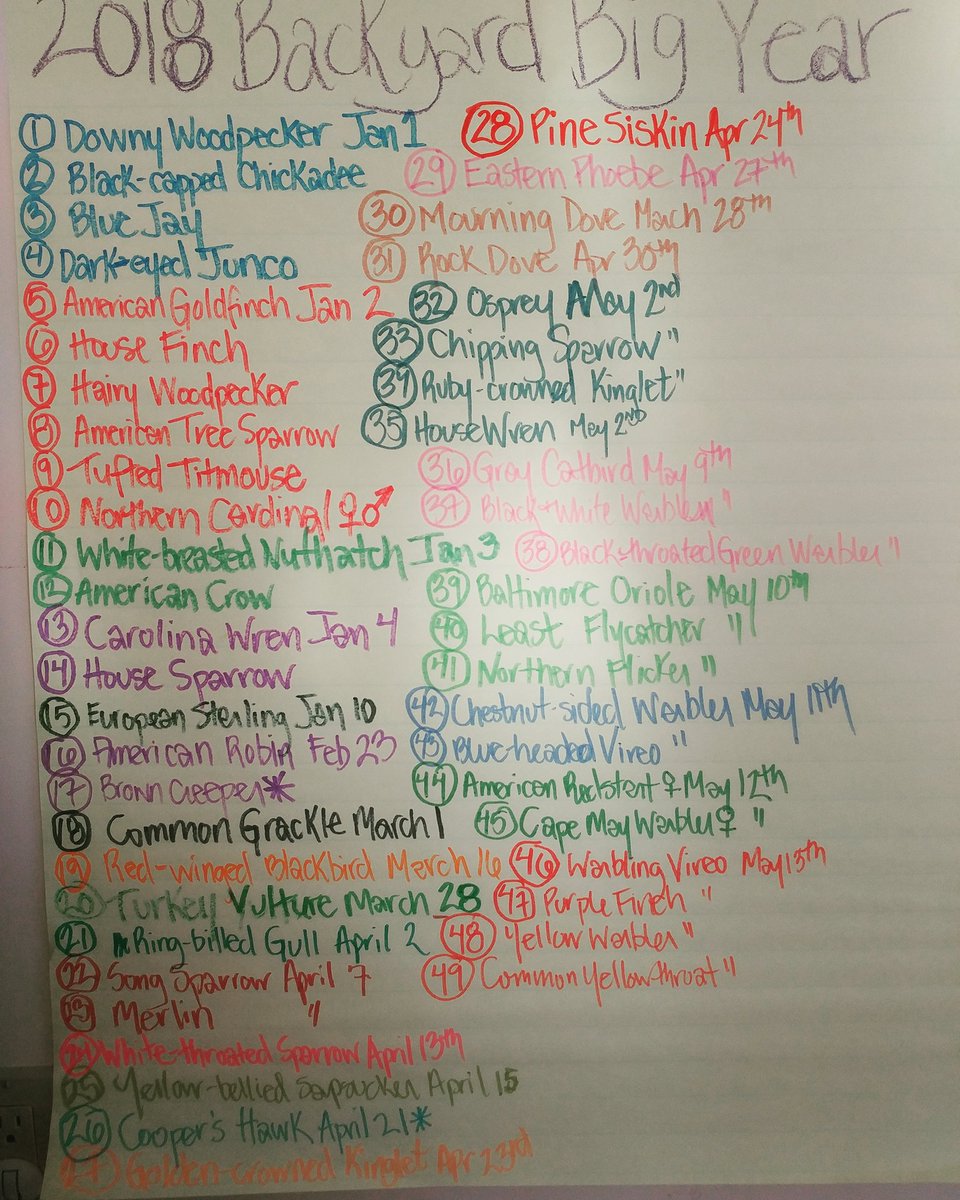 2018 Backyard Big Year
1 Downy Woodpecker Jan 1
2 Black-capped Chickadee
3 Blue Jay
4 Dark-eyed Junco
5 American Goldfinch Jan 2
6 House Finch
7 Hairy Woodpecker
8 American Tree Sparrow
9 Tufted Titmouse
10 Northern Cardinal ♀♂
11 White-breasted Nuthatch Jan 3
12 American Crow
13 Carolina Wren Jan 4
14 House Sparrow
15 European Starling Jan 10
16 American Robin Feb 23
17 Brown Creeper*
18 Common Grackle March 1
19 Red-winged Blackbird March 16
20 Turkey Vulture March 28
21 Ring-billed Gull April 2
22 Song Sparrow April 7
23 Merlin "
24 White-throated Sparrow April 13th
25 Yellow-bellied Sapsucker April 15
26 Cooper's Hawk April 21*
27 Golden-crowned Kinglet Apr 23rd
28 Pine Siskin Apr 24th
29 Eastern Phoebe Apr 27th
30 Mourning Dove Mach 28th
31 Rock Dove Apr 30th
32 Osprey May 2nd
33 Chipping Sparrow "
34 Ruby-crowned Kinglet "
35 House Wren May 2nd
36 Gray Catbird May 9th
37 Black+White Warbler "
38 Black-throated Green Warbler "
39 Baltimore Oriole May 10th
40 Least Flycatcher "
41 Northern Flicker "
42 Chestnut-sided Warbler May 11th
43 Blue-headed Vireo "
44 American Redstart ♀ May 12th
45 Cape May Warbler ♀ "
46 Warbling Vireo May 13th
47 Purple Finch "
48 Yellow Warbler "
49 Common Yellow-throat "